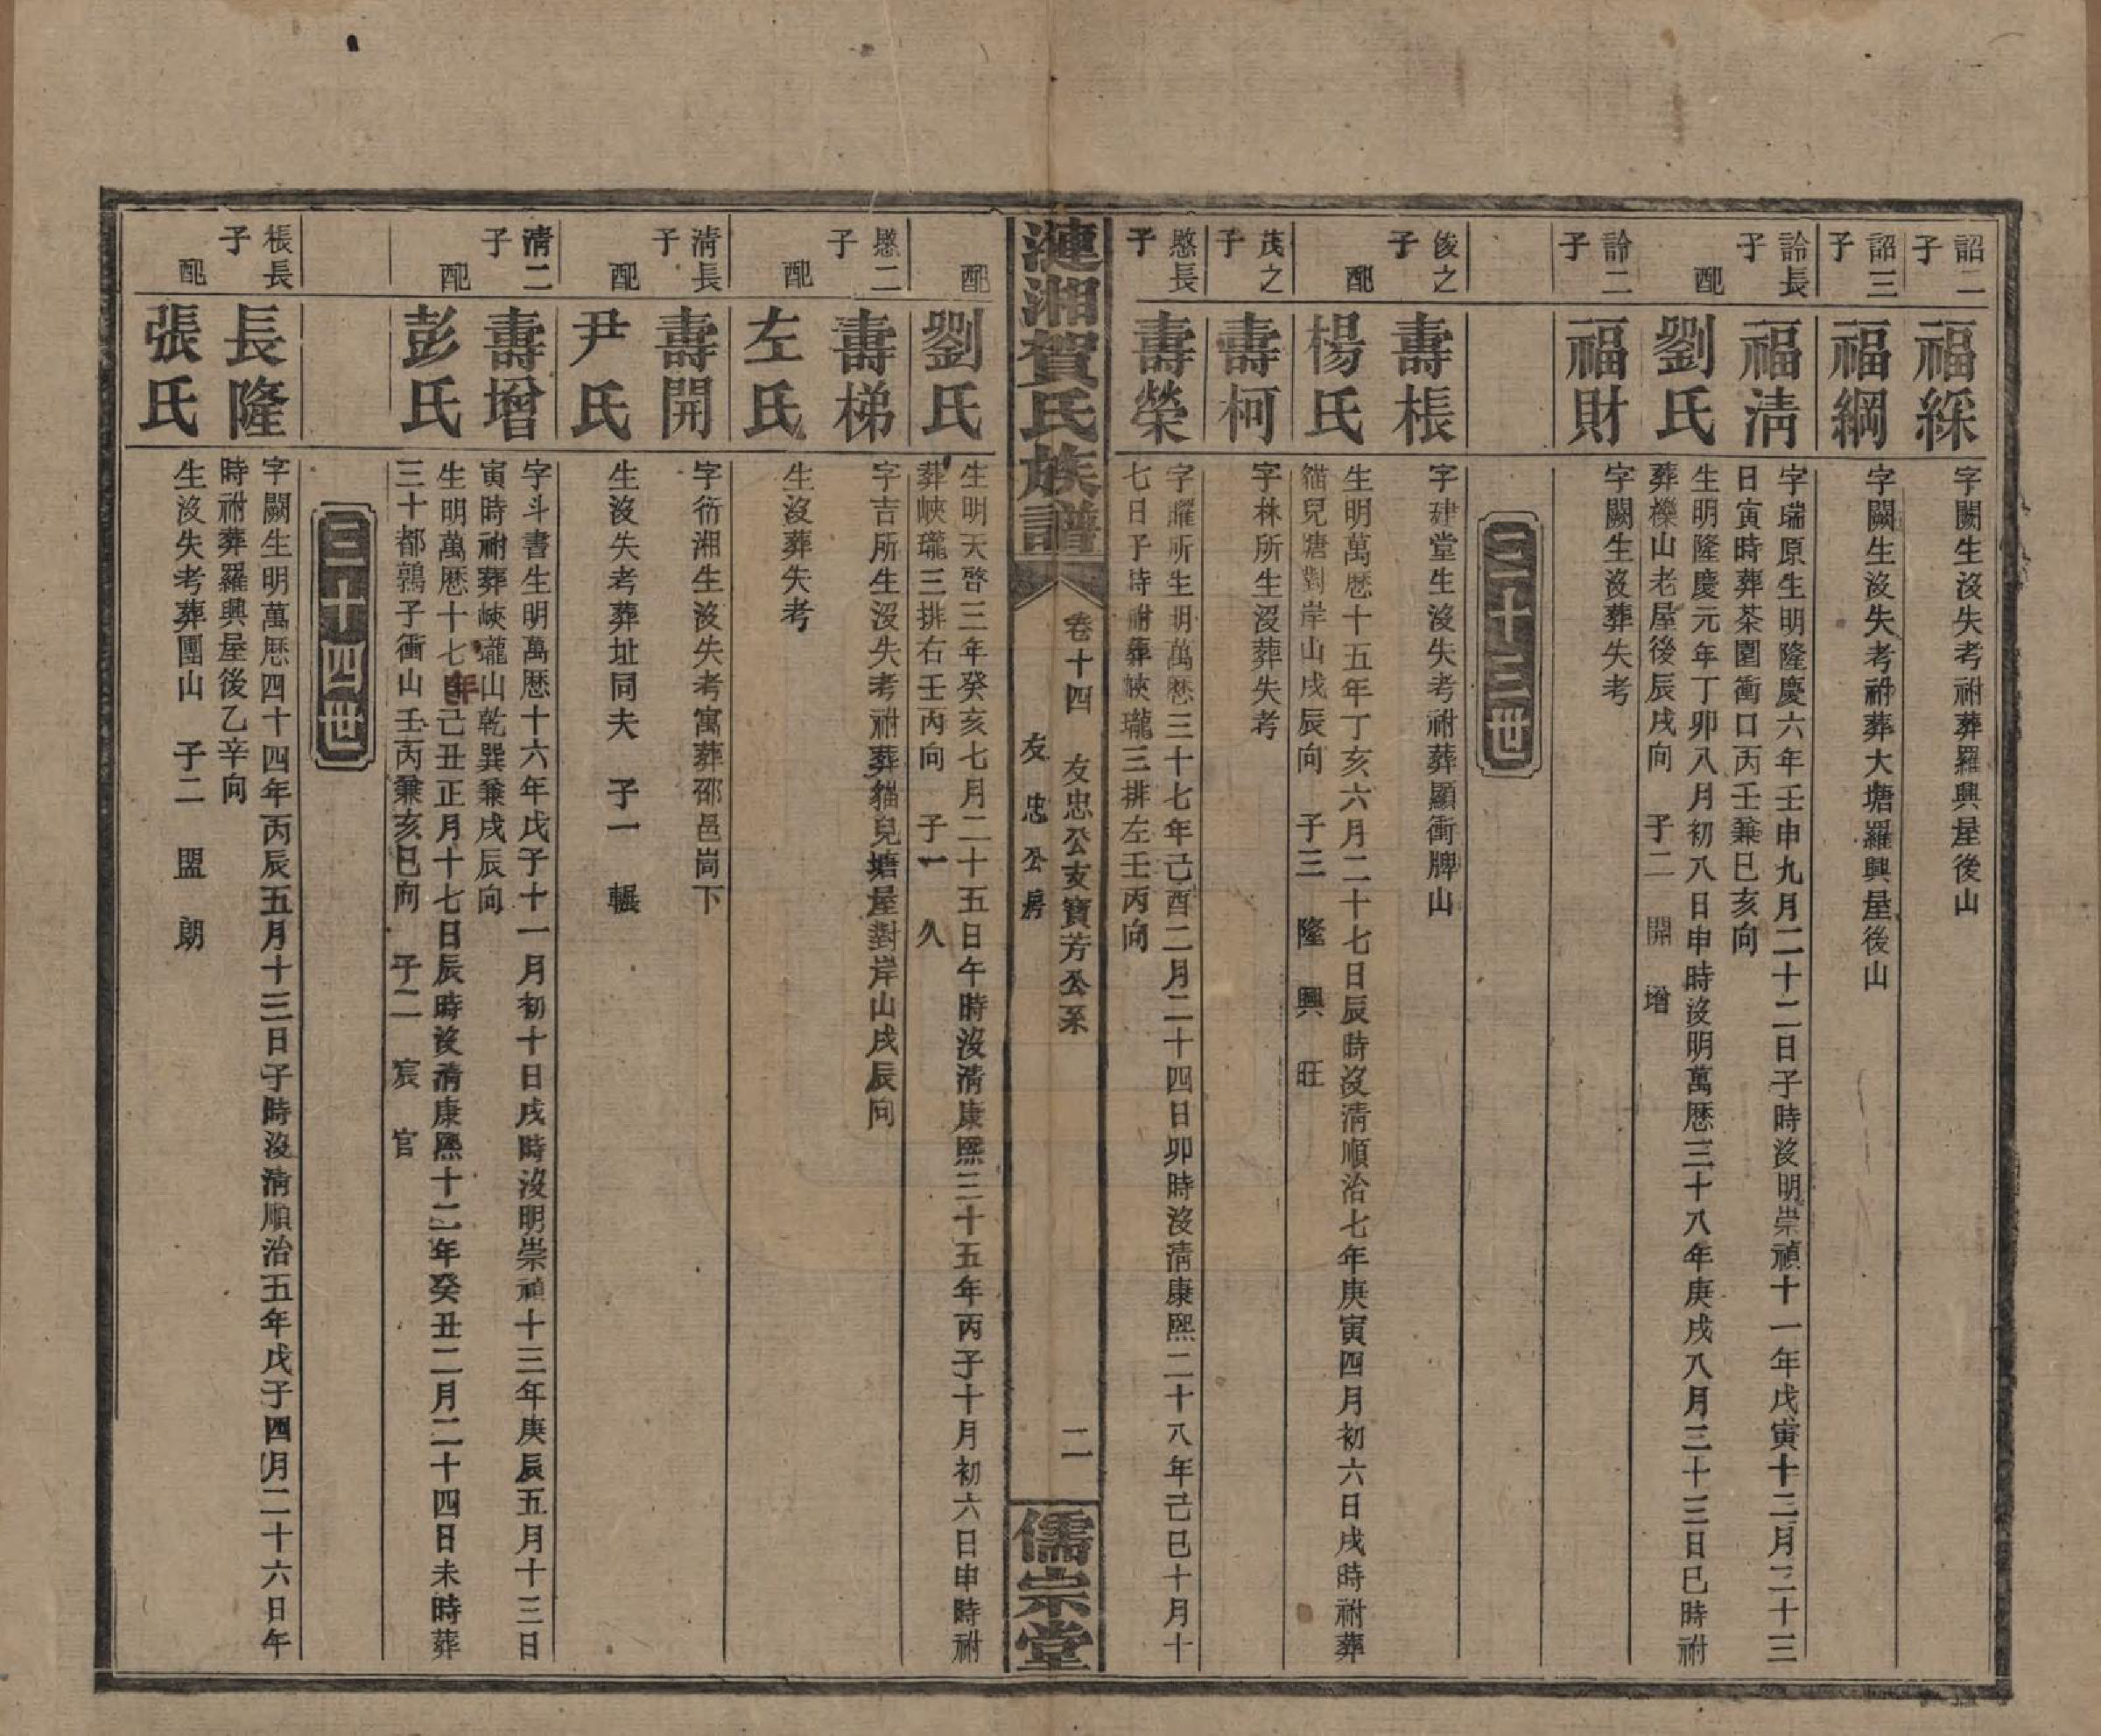 詔二子
福綵
字闕生沒失考祔葬羅興屋後山
詔三子
福綱
字闕生沒失考祔葬大塘羅興屋後山
論長子
福清
字瑞原生明隆慶六年壬申九月二十二日子時沒明崇禎十一年戊寅十二月二十三
日寅時葬茶園衝口丙壬兼巳亥向
配
劉氏
生明隆慶元年丁卯八月初八日申時沒明萬歷三十八年庚戌八月三十三日巳時祔
葬櫟山老屋後辰戌向 子二 開 增
論二子
福財
字闕生沒葬失考
三十三世
俊之子
壽棖
字建堂生沒失考祔葬顯衝脾山
配
楊氏
生明萬歷十五年丁亥六月二十七日辰時沒清順治七年庚寅四月初六日戌時祔葬
貓兒塘對岸山戌辰向 子三 隆 興 旺
茂之子
壽柯
字林所生沒葬失考
愍長子
壽榮
字曜所生明萬歷三十七年己酉二月二十四日卯時沒清康熙二十八年己巳十月十
七日子時祔葬峽瓏三排左壬丙向
漣湘賀氏族譜
卷十四 友忠公支寶芳公系
友忠公房
二
儒宗堂
配
劉氏
生明天啓三年癸亥七月二十五日午時沒清康熙三十五年丙子十月初六日申時祔
葬峽瓏三排右壬丙向 子一 久
愍二子
壽梯
字吉所生沒失考祔葬貓兒塘屋對岸山戌辰向
配
左氏
生沒葬失考
清長子
壽開
字衙湘生沒失考寓葬邵邑崗下
配
尹氏
生沒失考葬址同夫 子一 輾
清二子
壽增
字斗書生明萬歷十六年戊子十一月初十日戌時沒明崇禎十三年庚辰五月十三日
寅時祔葬峽瓏山乾巽兼戌辰向
配
彭氏
生明萬歷十七年己丑正月十七日辰時沒清康熙十二年癸丑二月二十四日未時葬
三十都鶉子衝山壬丙兼亥巳向 子二 宸 官
三十四世
棖長子
長隆
字闕生明萬歷四十四年丙辰五月十三日子時沒清順治五年戊子四月二十六日午
時祔葬羅興屋後乙辛向
配
張氏
生沒失考葬團山 子二 盟 朗